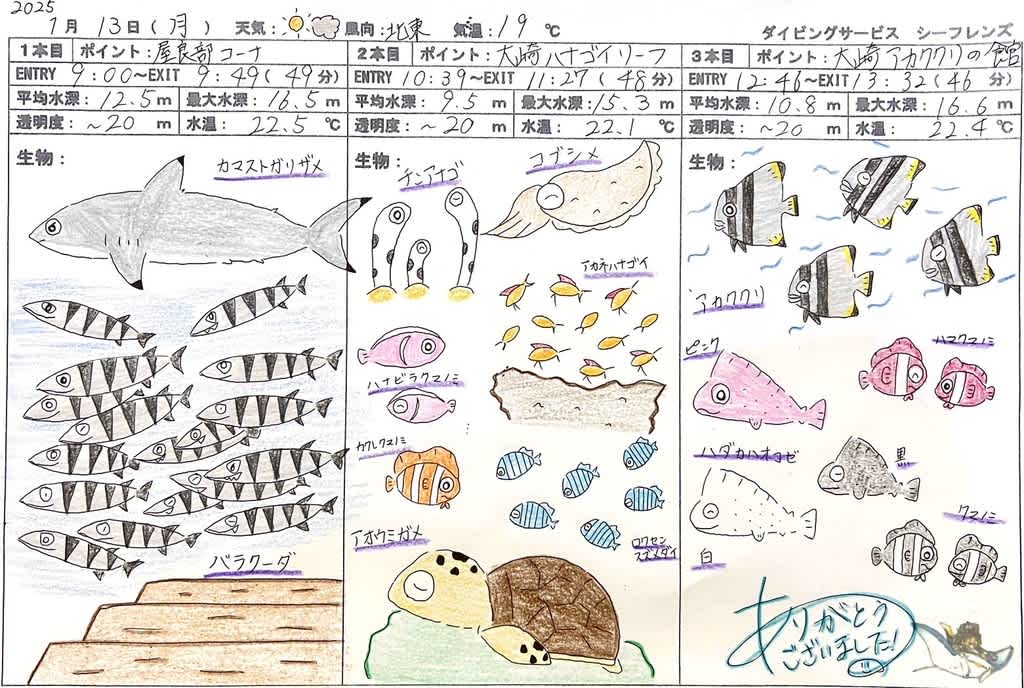 2025
1月 13日(月) 天気: 風向:北東 気温:19℃ ダイビングサービス シーフレンズ
1本目 ポイント:屋良部コーナ
ENTRY 9:00~EXIT 9:49(49分)
平均水深:12.5m 最大水深:16.5m
透明度:~20m 水温:22.5℃
生物:
カマストガリザメ
バラクーダ
2本目 ポイント:大崎ハナゴイリーフ
ENTRY 10:39~EXIT 11:27(48分)
平均水深:9.5m 最大水深:15.3m
透明度:~20m 水温:22.1℃
生物:
チンアナゴ
コブシメ
アカネハナゴイ
ハナビラクマノミ
カクレクマノミ
アオウミガメ
ロクセン
スズメダイ
3本目 ポイント:大崎アカククリの館
ENTRY 12:46~EXIT 13:32(46分)
平均水深:10.8m 最大水深:16.6m
透明度:~20m 水温:22.4℃
生物:
アカククリ
ピンク
ハマクマノミ
ハダカハオコゼ
黒
クマノミ
白
ありがとう
ございました!